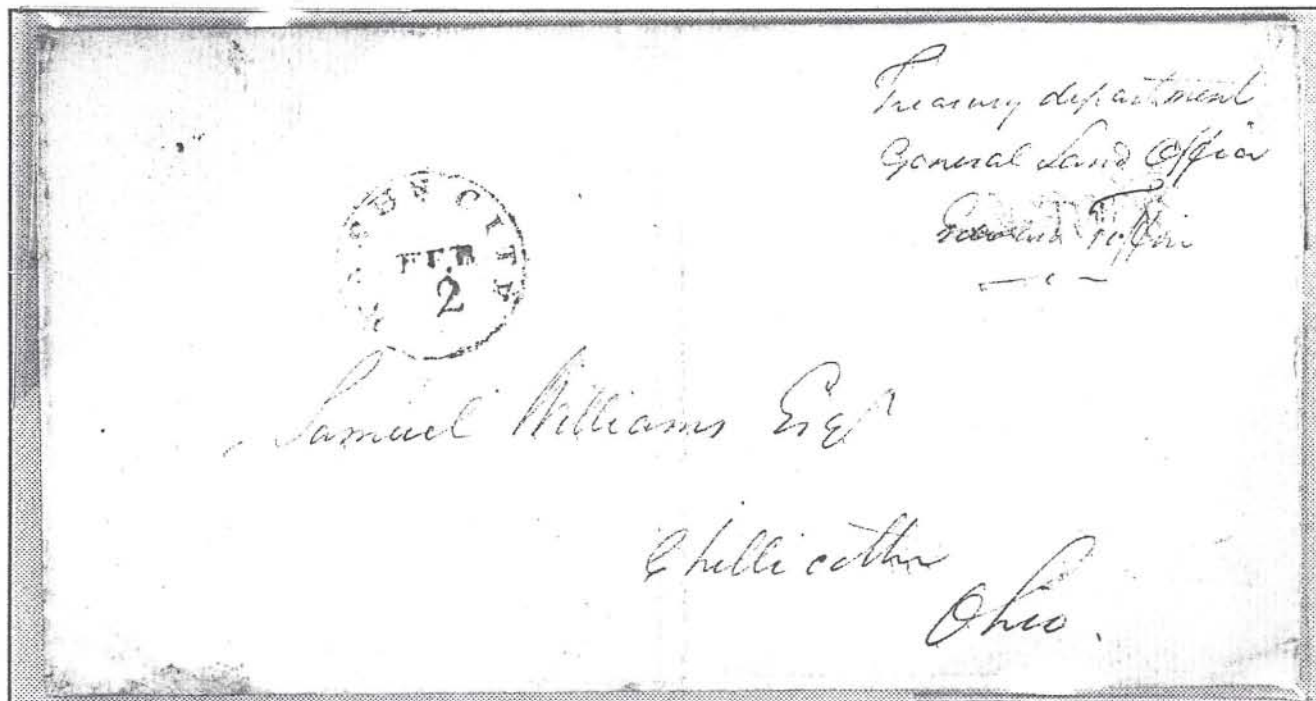 Treasury department
General Land Office
Edward Tiffin
WASHN CITY
FEB
2
Samuel Williams Esqr
Chillicothe
Ohio.